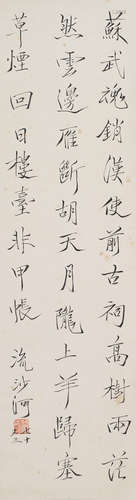 蘇武魂銷漢使前古祠高樹兩茫
然雲邊雁斷胡天月隴上羊歸塞
草煙回日樓臺非甲帳
流沙河